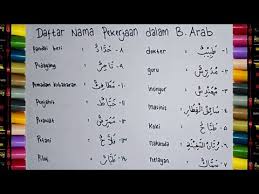 Daftar Nama Pekerjaan dalam B. Arab
١- طَبِيْبٌ dokter
٢- مُدَرِّسٌ guru
٣- مُهَنْدِسٌ insinyur
٤- سَائِقُ القِطَارِ masinis
٥- طَبَّاخٌ Koki
٦- nahkoda
٧- سَمَّاكٌ nelayan
٨- حَدَّادٌ Pandai besi
٩- تَاجِرٌ Pedagang
١٠- Pemadam kebakaran
١١- خَيَّاطٌ Penjahit
١٢- مُمَرِّضٌ Perawat
١٣- فَلَّاحٌ Petani
١٤- طَيَّارٌ Pilot